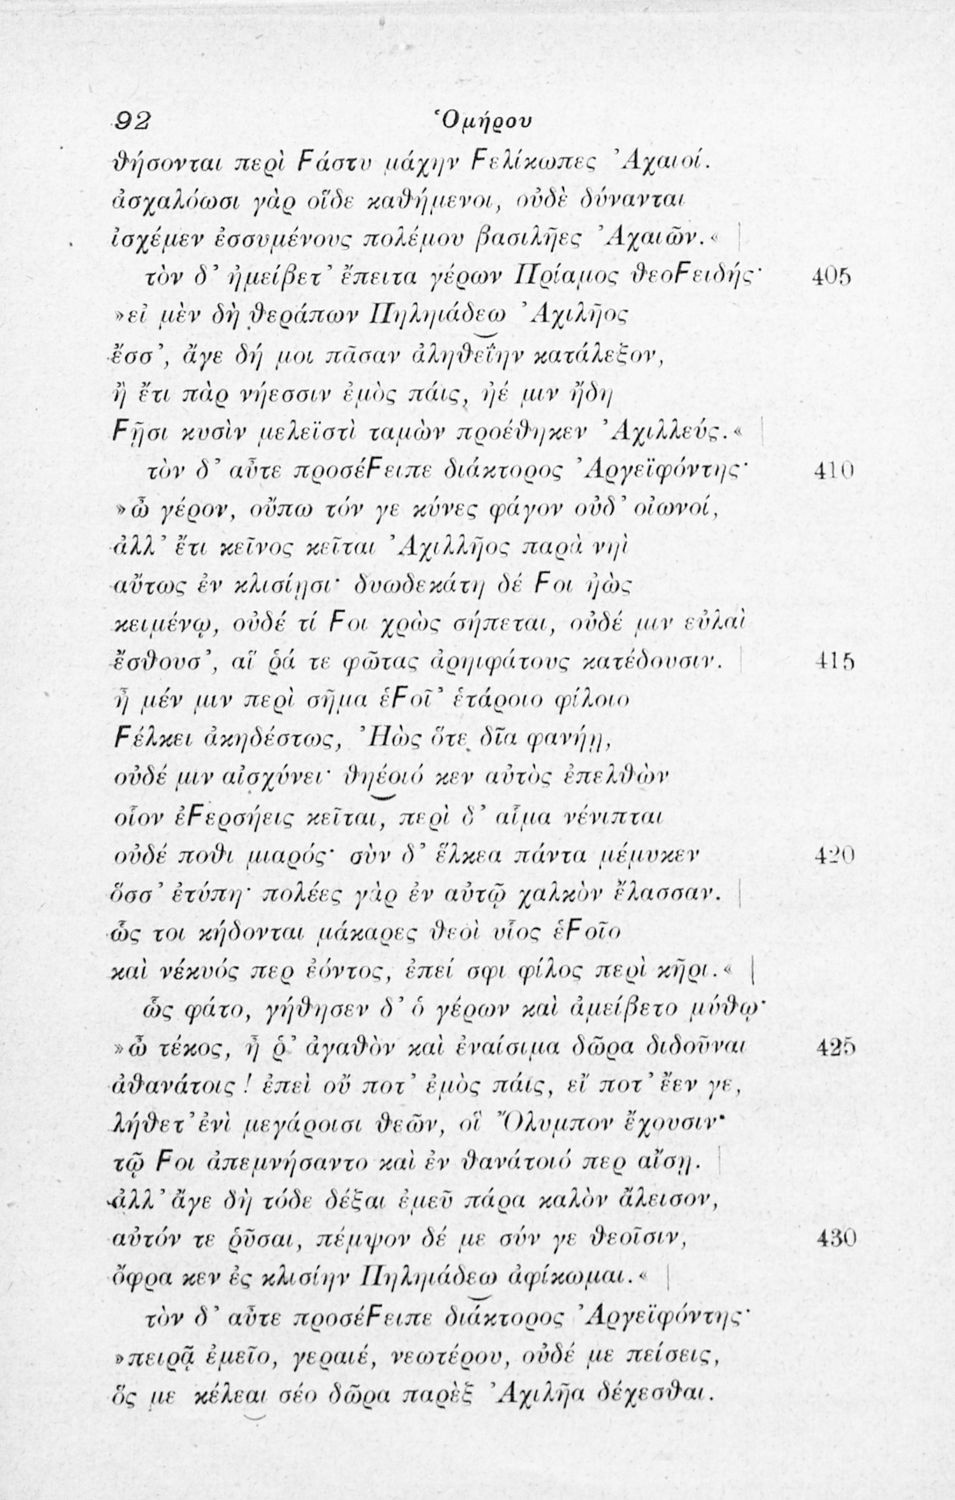 92 Ὁμήρου
θήσονται περὶ Ϝάστυ μάχην Ϝελίκωπες Ἀχαιοί.
ἀσχαλόωσι γὰρ οἵδε καθήμενοι, οὐδὲ δύνανται
ἰσχέμεν ἐσσυμένους πολέμου βασιλῆες Ἀχαιῶν.« |
τὸν δ’ ἠμείβετ’ ἔπειτα γέρων Πρίαμος θεοϜειδής· 405
»εἰ μὲν δὴ θεράπων Πηληιάδεω Ἀχιλῆος
ἔσσ’, ἄγε δή μοι πᾶσαν ἀληθεΐην κατάλεξον,
ἢ ἔτι πὰρ νήεσσιν ἐμὸς πάις, ἠέ μιν ἤδη
Ϝῇσι κυσὶν μελεϊστὶ ταμὼν προέθηκεν Ἀχιλλεύς.« |
τὸν δ’ αὖτε προσέϜειπε διάκτορος Ἀργεϊφόντης· 410
»ὦ γέρον, οὔπω τόν γε κύνες φάγον οὐδ’ οἰωνοί,
ἀλλ’ ἔτι κεῖνος κεῖται Ἀχιλλῆος παρὰ νηὶ
αὔτως ἐν κλισίῃσι· δυωδεκάτη δέ Ϝοι ἠὼς
κειμένῳ, οὐδέ τί Ϝοι χρὼς σήπεται, οὐδέ μιν εὐλαὶ
ἔσθουσ’, αἵ ῥά τε φῶτας ἀρηιφάτους κατέδουσιν. | 415
ἦ μέν μιν περὶ σῆμα ἑϜοῖ’ ἑτάροιο φίλοιο
Ϝέλκει ἀκηδέστως, Ἠὼς ὅτε δῖα φανήῃ,
οὐδέ μιν αἰσχύνει· θηέοιό κεν αὐτὸς ἐπελθὼν
οἷον ἐϜερσήεις κεῖται, περὶ δ’ αἷμα νένιπται
οὐδέ ποθι μιαρός· σὺν δ’ ἕλκεα πάντα μέμυκεν 420
ὅσσ’ ἐτύπη· πολέες γὰρ ἐν αὐτῷ χαλκὸν ἔλασσαν. |
ὥς τοι κήδονται μάκαρες θεοὶ υἷος ἑϜοῖο
καὶ νέκυός περ ἐόντος, ἐπεί σφι φίλος περὶ κῆρι.« |
ὣς φάτο, γήθησεν δ’ ὁ γέρων καὶ ἀμείβετο μύθῳ·
»ὦ τέκος, ἦ ῥ’ ἀγαθὸν καὶ ἐναίσιμα δῶρα διδοῦναι 425
ἀθανάτοις! ἐπεὶ οὔ ποτ’ ἐμὸς πάις, εἴ ποτ’ ἔεν γε,
λήθετ’ ἐνὶ μεγάροισι θεῶν, οἳ Ὄλυμπον ἔχουσιν·
τῷ Ϝοι ἀπεμνήσαντο καὶ ἐν θανάτοιό περ αἴσῃ. |
ἀλλ’ ἄγε δὴ τόδε δέξαι ἐμεῦ πάρα καλὸν ἄλεισον,
αὐτόν τε ῥῦσαι, πέμψον δέ με σύν γε θεοῖσιν, 430
ὄφρα κεν ἐς κλισίην Πηληιάδεω ἀφίκωμαι.« |
τὸν δ’ αὖτε προσέϜειπε διάκτορος Ἀργεϊφόντης·
»πειρᾷ ἐμεῖο, γεραιέ, νεωτέρου, οὐδέ με πείσεις,
ὅς με κέλεαι σέο δῶρα παρὲξ Ἀχιλῆα δέχεσθαι.